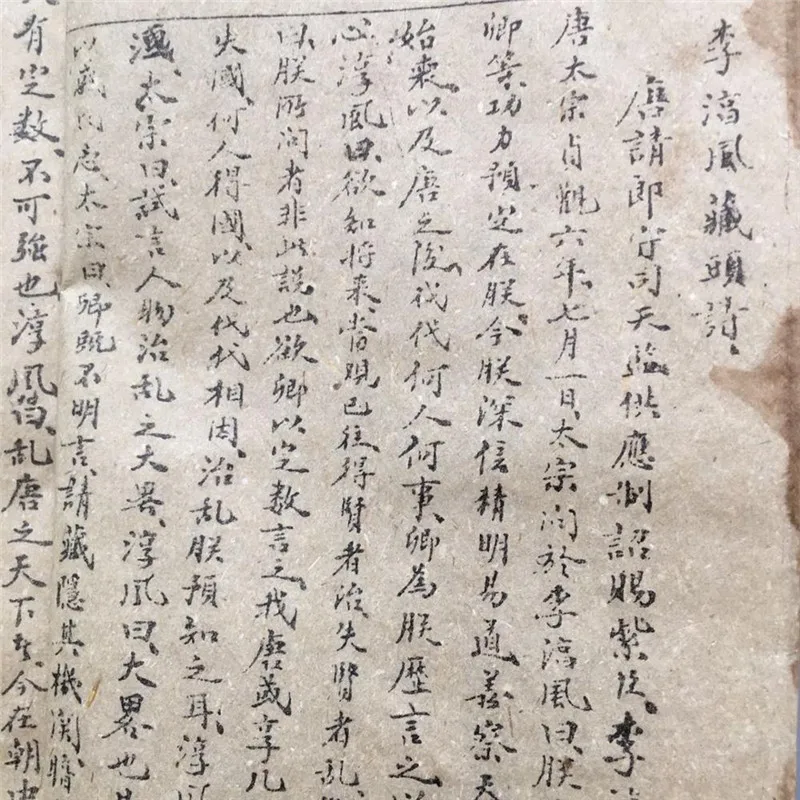 李淳風藏頭詩、
唐請郎守司天監供應制詔賜紫臣、李
唐太宗貞觀六年、七月一日、太宗问於李淳風曰、朕
卿算、功力預定在朕、今朕深信精明易道、善察天
始衰、以及唐之後、代代何人何事、卿為朕歷言之、以
心、淳風曰、欲知将来、當观已往、得賢者治、失賢者乱
曰、朕所问者非此說也、欲卿以定数言之、我唐或享几
失國、何人得國、以及代代相周、治乱朕預知之耳、淳
洩、太宗曰、試言人物治乱之大畧、淳風曰、大畧也
太宗曰、卿既不明言、請藏隱其機関
有定数、不可強也、淳風曰、乱唐之天下者、今在朝